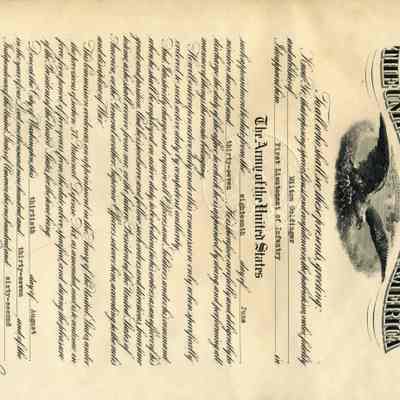 THE UNI MERICA
To all who shall see these presents, greeting:
Know Ye, that reposing special trust and confidence in the patriotism, valor, fidelity
and abilities of Milton Goldfinger
I do appoint him First Lieutenant of Infantry in
The Army of the United States
such appointment to date from the eighteenth day of June
nineteen hundred and thirty-seven. He is therefore carefully and diligently to
discharge the duty of the office to which he is appointed by doing and performing all
manner of things thereunto belonging.
He will enter upon active duty under this commission only when specifically
ordered to such active duty by competent authority.
And I do strictly charge and require all officers and soldiers under his command
when he shall be employed on active duty to be obedient to his orders as an officer of his
grade and position. And he is to observe and follow such orders and directions, from time
to time, as he shall receive from me, or the future President of the United States of
America, or the General or other superior Officers set over him, according to the rules
and discipline of War.
This Commission evidences an appointment in the Army of the United States under
the provisions of section 37, National Defense Act, as amended, and is to continue in
force for a period of five years from the date above specified, and during the pleasure
of the President of the United States for the time being.
Done at the City of Washington, this thirtieth day of August
in the year of our Lord one thousand nine hundred and thirty-seven and of the
Independence of the United States of America the one hundred and sixty-second